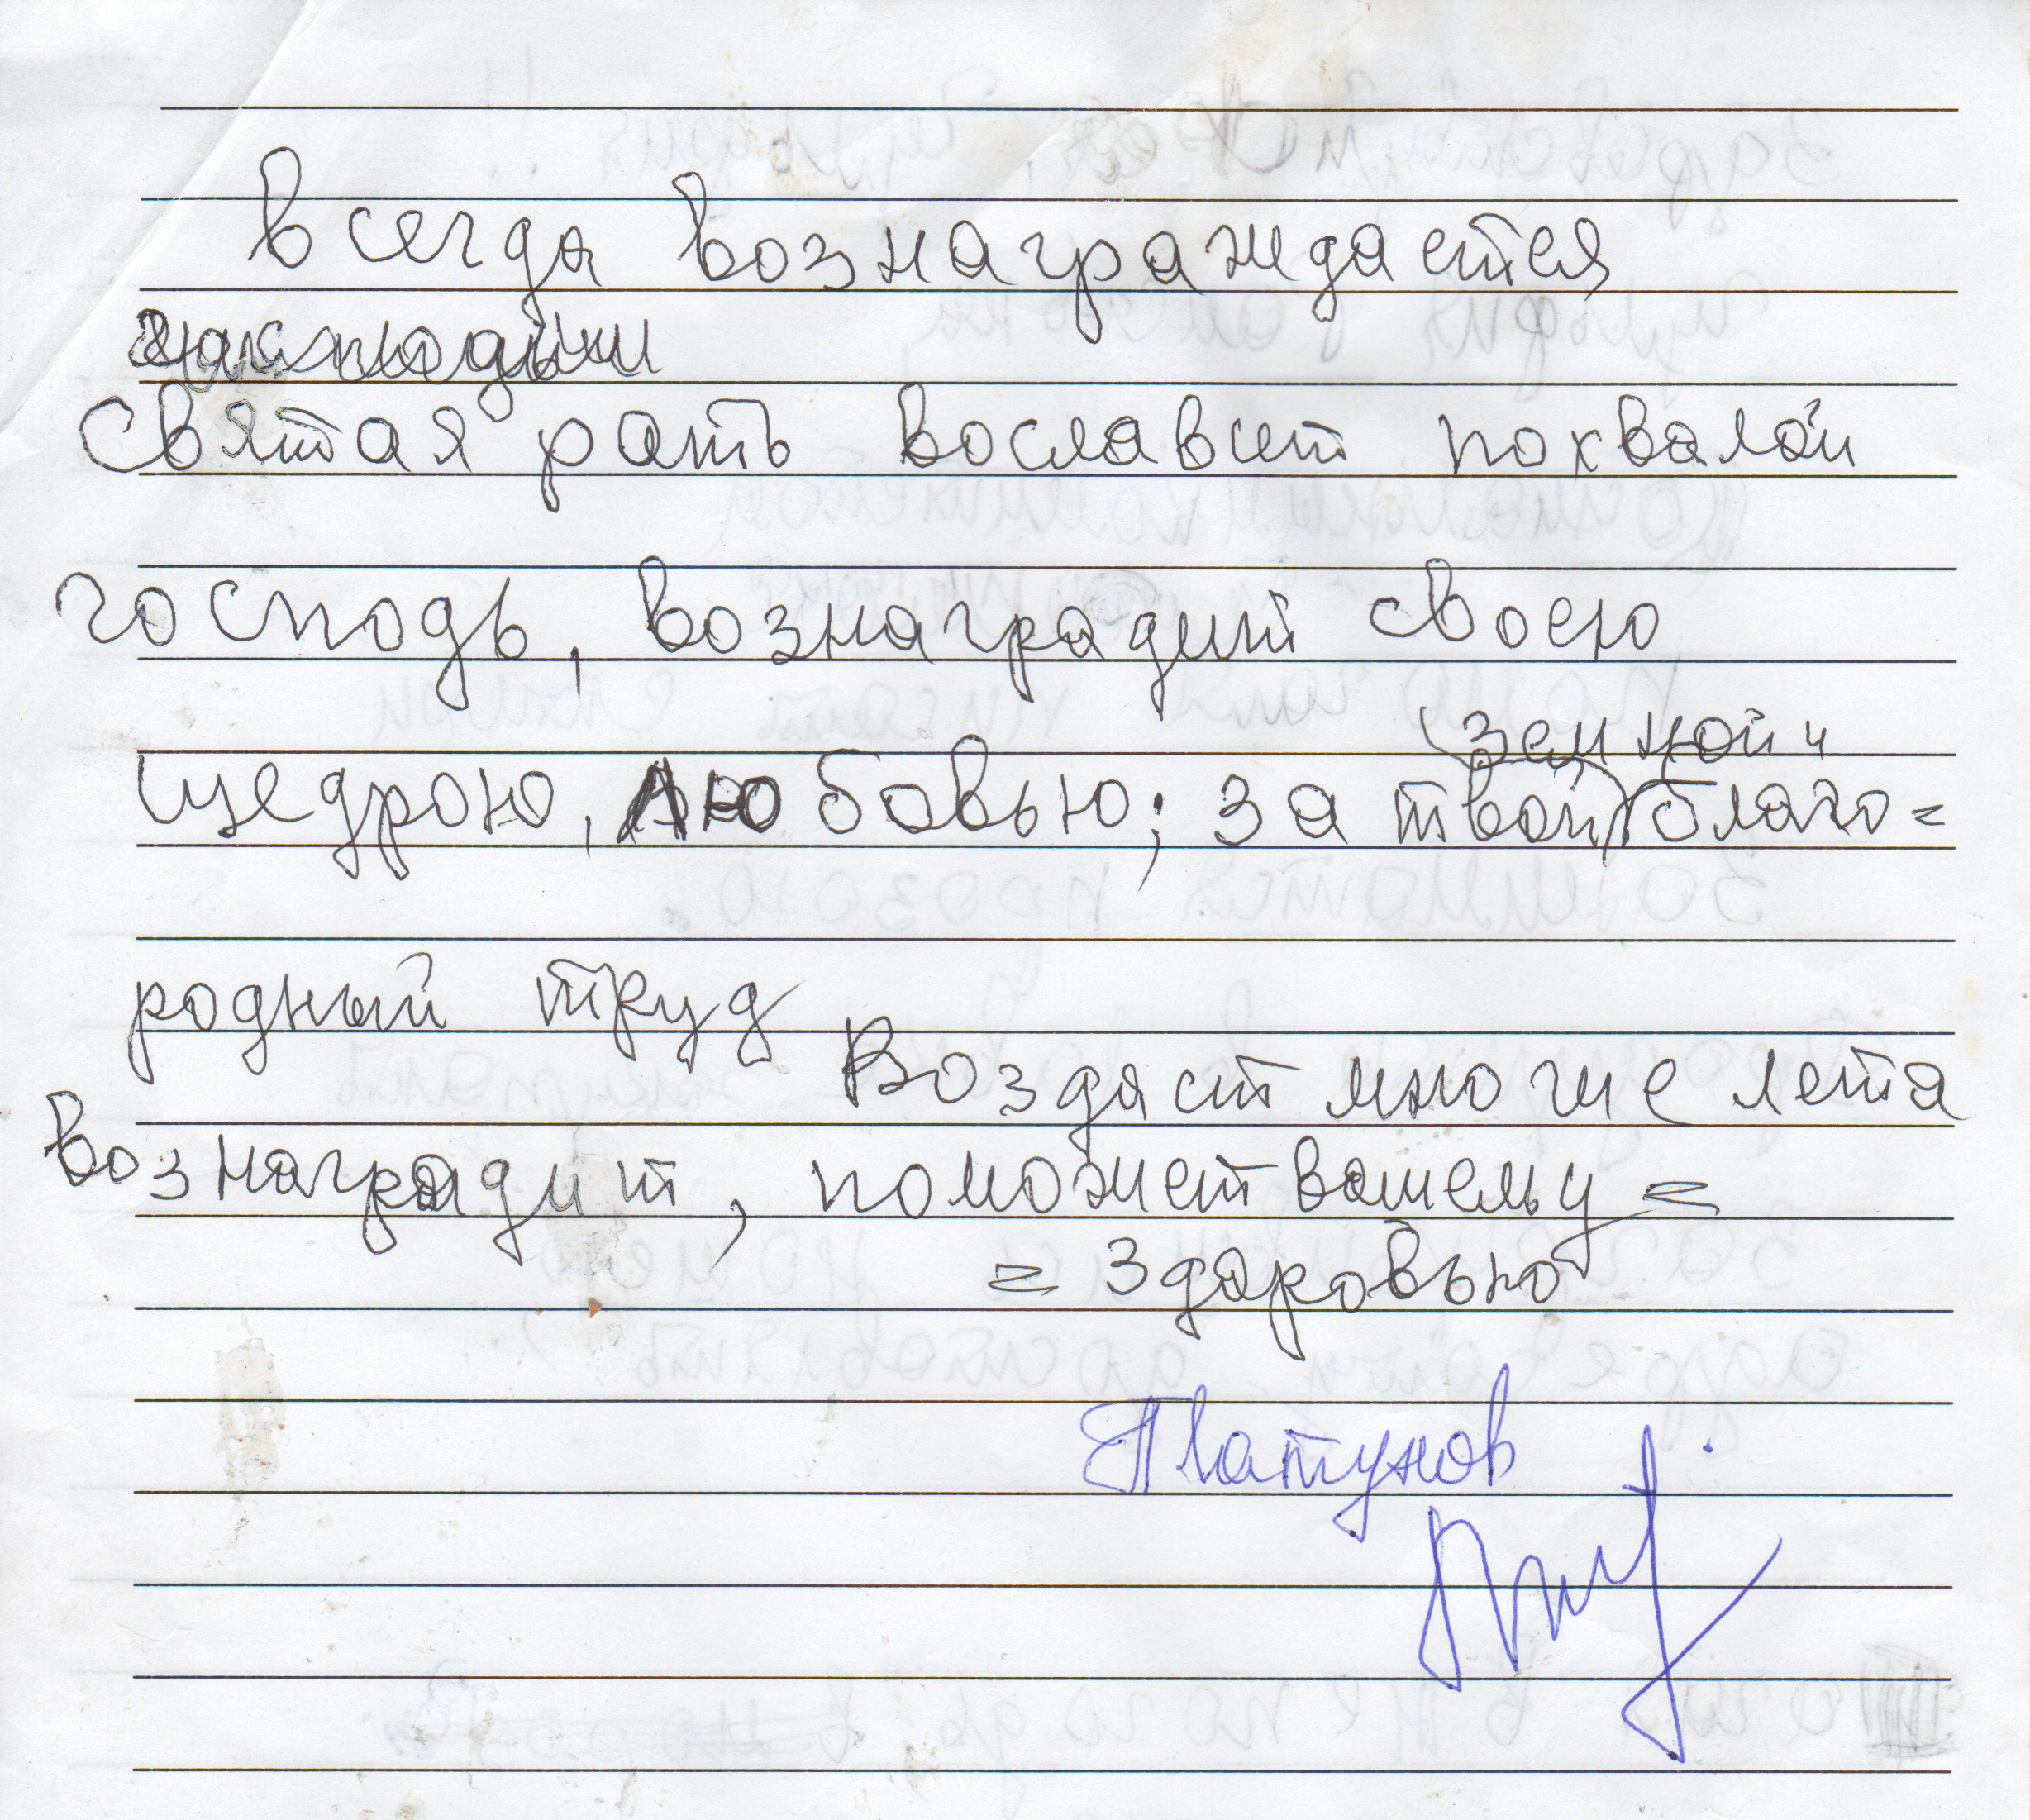 всегда вознаграждается
Святая рать вославит похвалой
господь, вознаградит своею
щедрою, любовью; за твой (земной и) благо=
родный труд
Воздаст многие лета
вознаградит, поможет вашему =
= здоровью
Платунов